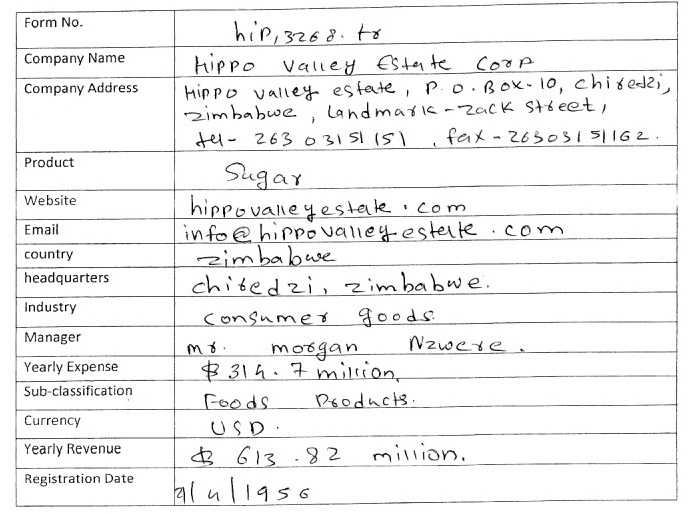 Form No. hip,3268.tr
Company Name Hippo Valley Estate Corp
Company Address Hippo valley estate, P.O.Box-10, chiredzi,
zimbabwe, Landmark-zack street,
tel- 263 03151151, fax-26303151162.
Product Sugar
Website hippovalleyestate.com
Email info@hippovalleyestate.com
country zimbabwe
headquarters chiredzi, zimbabwe.
Industry consumer goods.
Manager mr. morgan Nzwere.
Yearly Expense $ 314.7 million.
Sub-classification Foods Products.
Currency USD.
Yearly Revenue $ 613.82 million.
Registration Date 9/4/1956